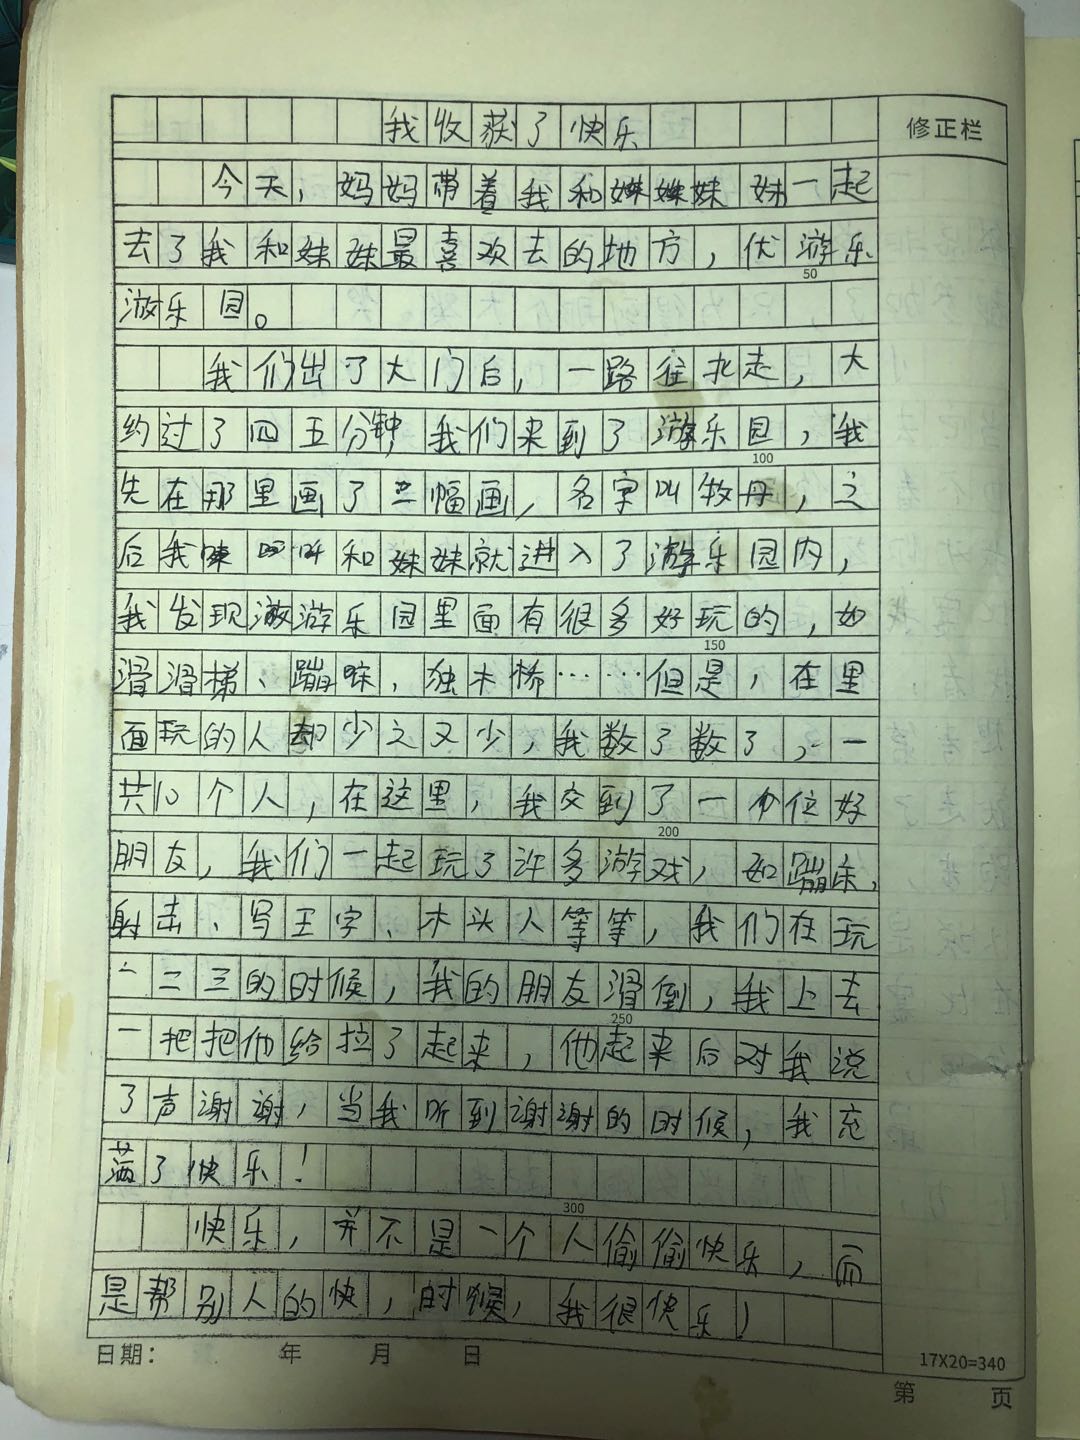 我收获了快乐
修正栏
今天，妈妈带着我和妹妹一起
去了我和妹妹最喜欢去的地方，优游乐
50
游乐园。
我们出了大门后，一路往北走，大
约过了四五分钟我们来到了游乐园，我
100
先在那里画了一幅画，名字叫牧丹，之
后我和妹妹就进入了游乐园内，
我发现游乐园里面有很多好玩的，如
150
滑滑梯、蹦床，独木桥……但是，在里
面玩的人却少之又少，我数了数了，一
共10个人，在这里，我交到了一位好
200
朋友，我们一起玩了许多游戏，如蹦床，
射击、写王字、木头人等等，我们在玩
一二三的时候，我的朋友滑倒，我上去
250
一把把他给拉了起来，他起来后对我说
了声谢谢，当我听到谢谢的时候，我充
满了快乐！
300
快乐，并不是一个人偷偷快乐，而
是帮别人的快，时候，我很快乐！
日期： 年 月 日
17X20=340
第 页